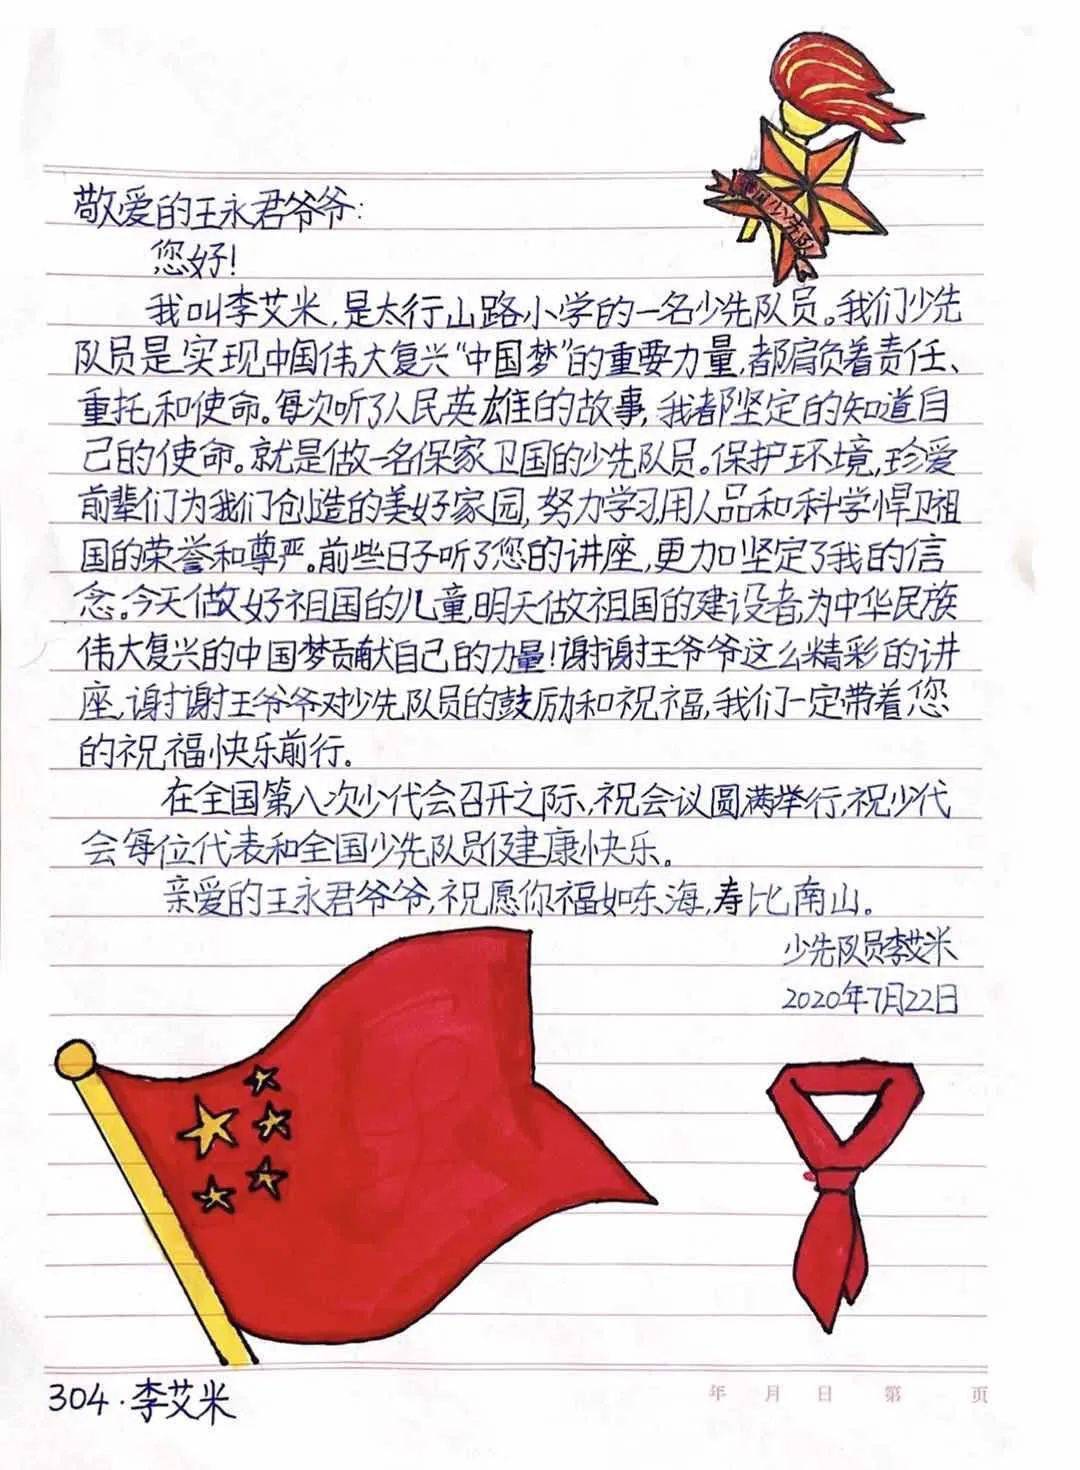 敬爱的王永君爷爷:
您好!
我叫李艾米,是太行山路小学的一名少先队员。我们少先
队员是实现中国伟大复兴“中国梦”的重要力量,都肩负着责任、
重托和使命。每次听了人民英雄的故事,我都坚定的知道自
己的使命。就是做一名保家卫国的少先队员。保护环境,珍爱
前辈们为我们创造的美好家园,努力学习,用人品和科学悍卫祖
国的荣誉和尊严。前些日子听了您的讲座,更加坚定了我的信
念。今天做好祖国的儿童,明天做祖国的建设者,为中华民族
伟大复兴的中国梦贡献自己的力量!谢谢王爷爷这么精彩的讲
座,谢谢王爷爷对少先队员的鼓励和祝福,我们一定带着您
的祝福快乐前行。
在全国第八次少代会召开之际、祝会议圆满举行,祝少代
会每位代表和全国少先队员健康快乐。
亲爱的王永君爷爷,祝愿你福如东海,寿比南山。
少先队员李艾米
2020年7月22日
304·李艾米
年 月 日 第 页